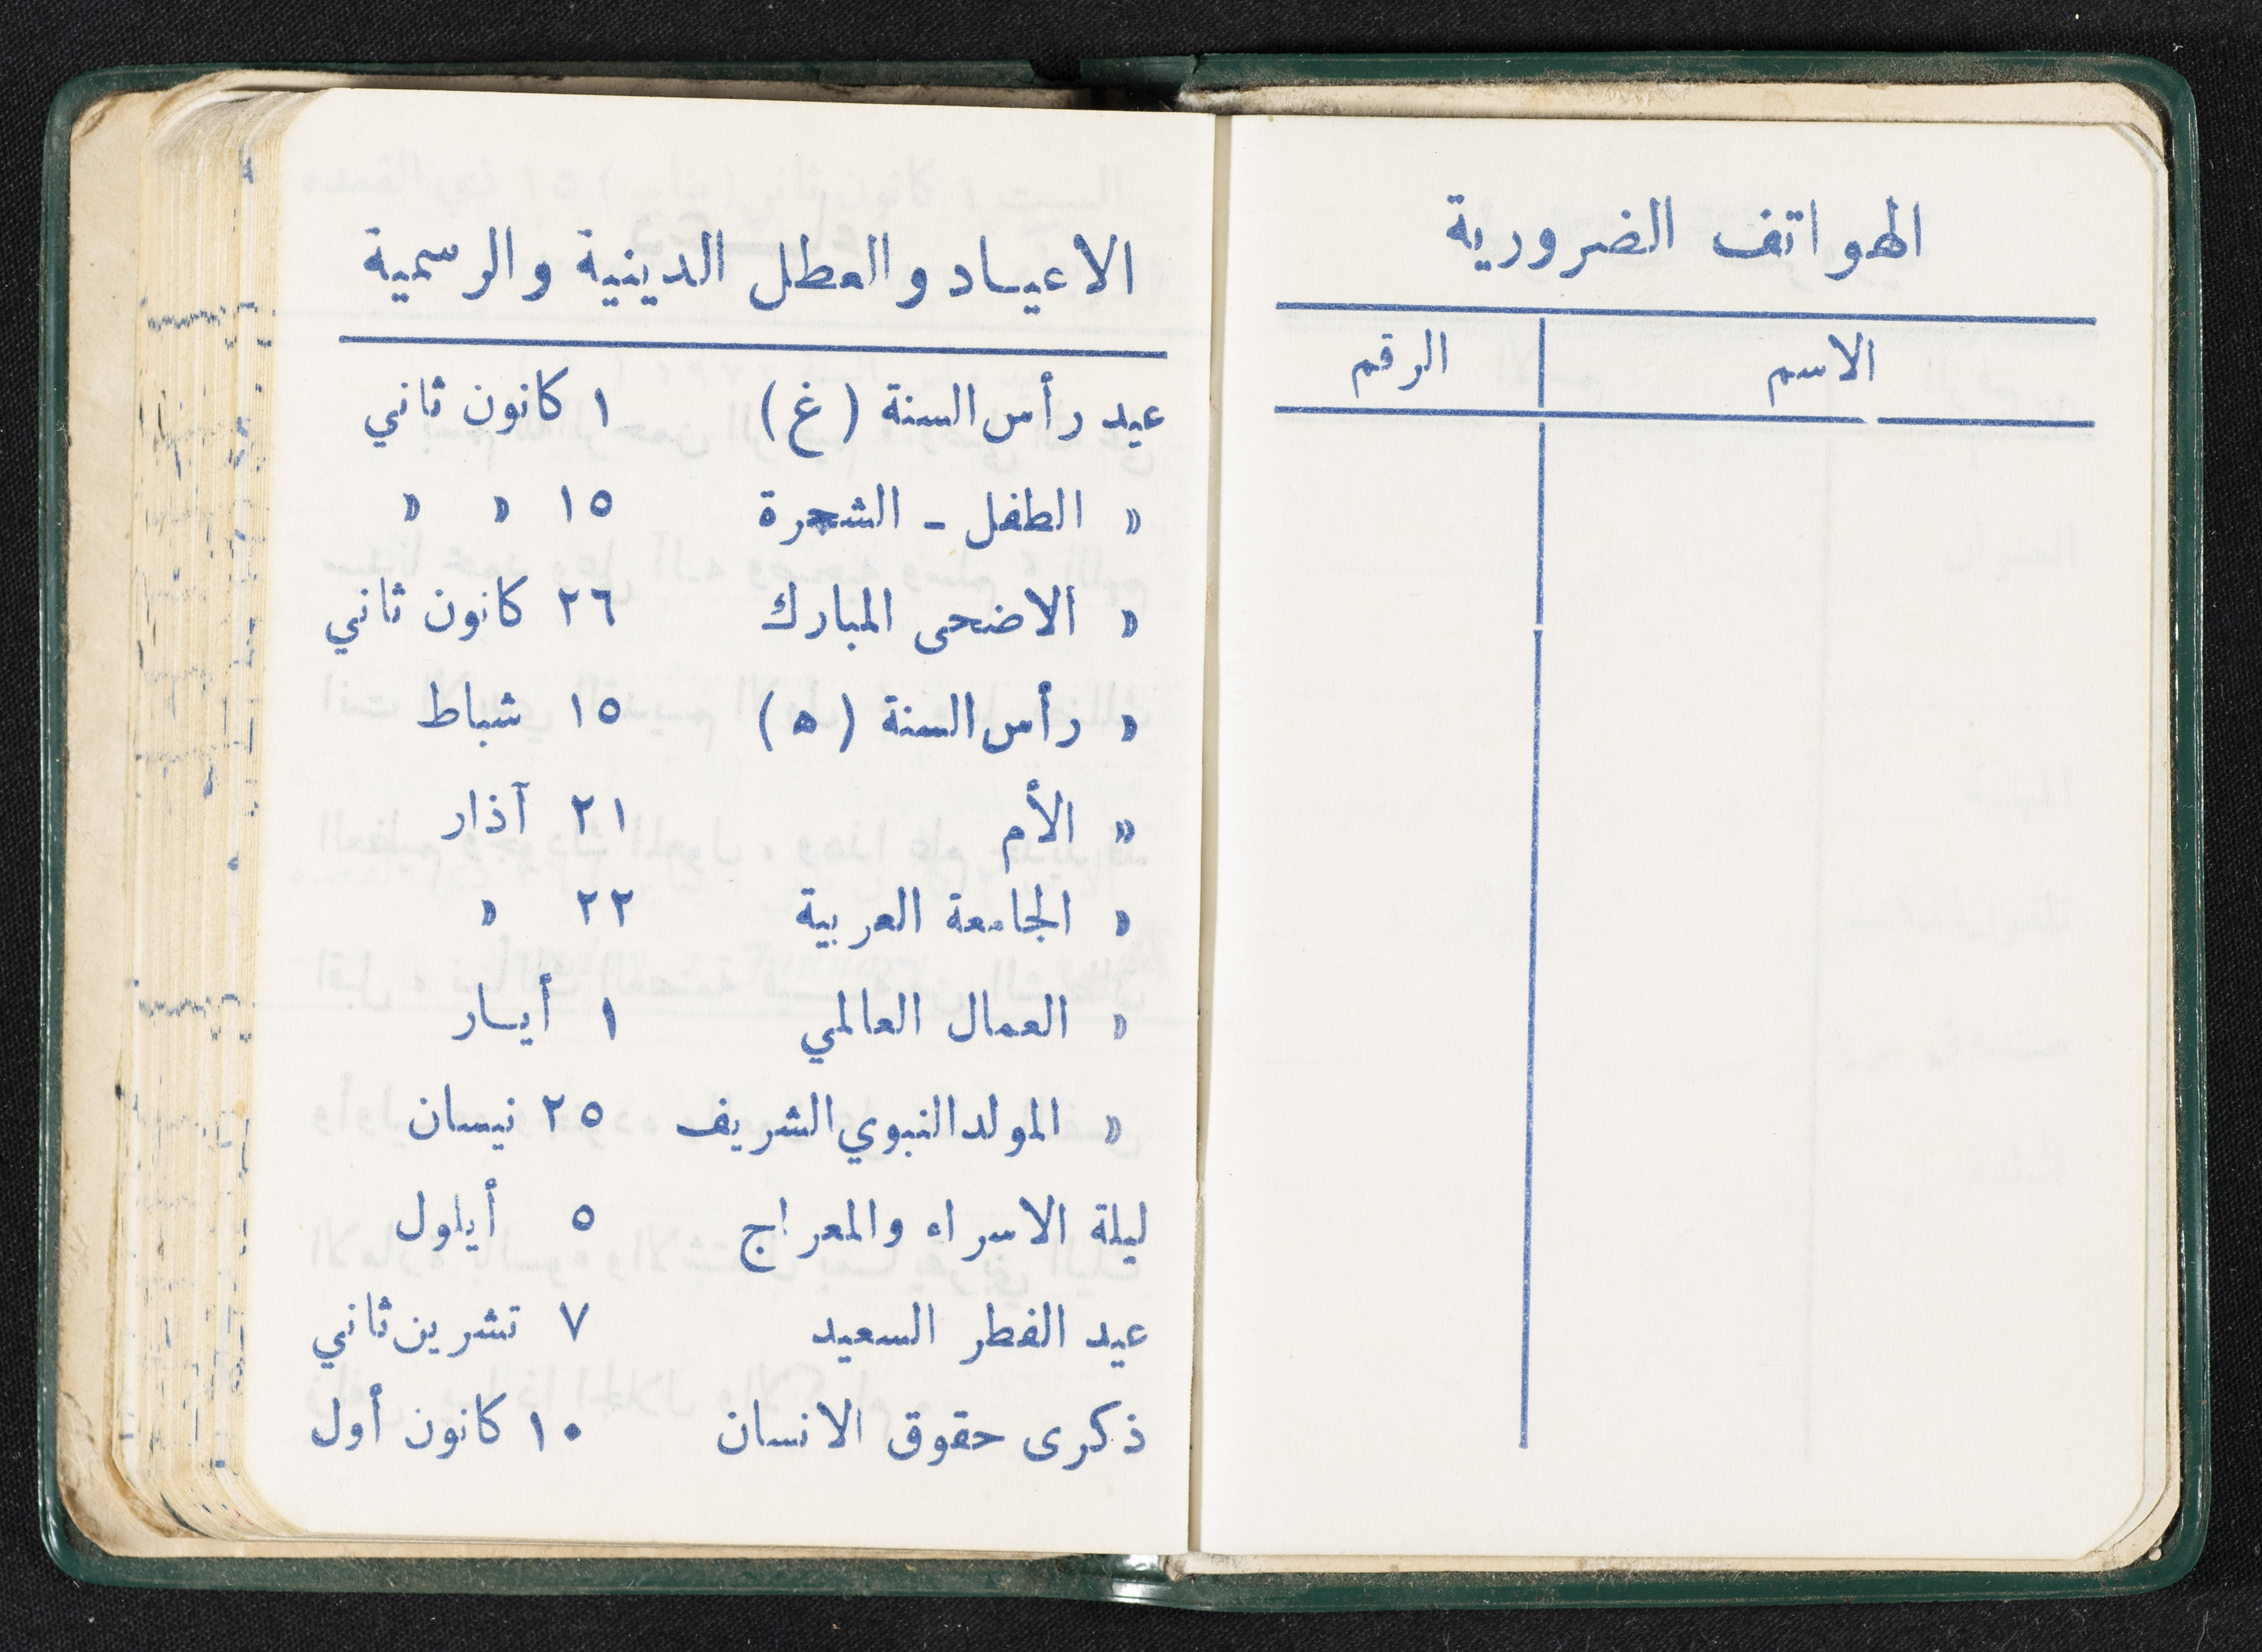 الهواتف الضرورية
الاسم الرقم
الاعياد والعطل الدينية والرسمية
عيد رأس السنة (غ) ١ كانون ثاني
» الطفل - الشجرة ١٥ » »
» الاضحى المبارك ٢٦ كانون ثاني
» رأس السنة (ه) ١٥ شباط
» الأم ٢١ آذار
» الجامعة العربية ٢٢ »
» العمال العالمي ١ أيار
» المولد النبوي الشريف ٢٥ نيسان
ليلة الاسراء والمعراج ٥ أيلول
عيد الفطر السعيد ٧ تشرين ثاني
ذكرى حقوق الانسان ١٠ كانون أول